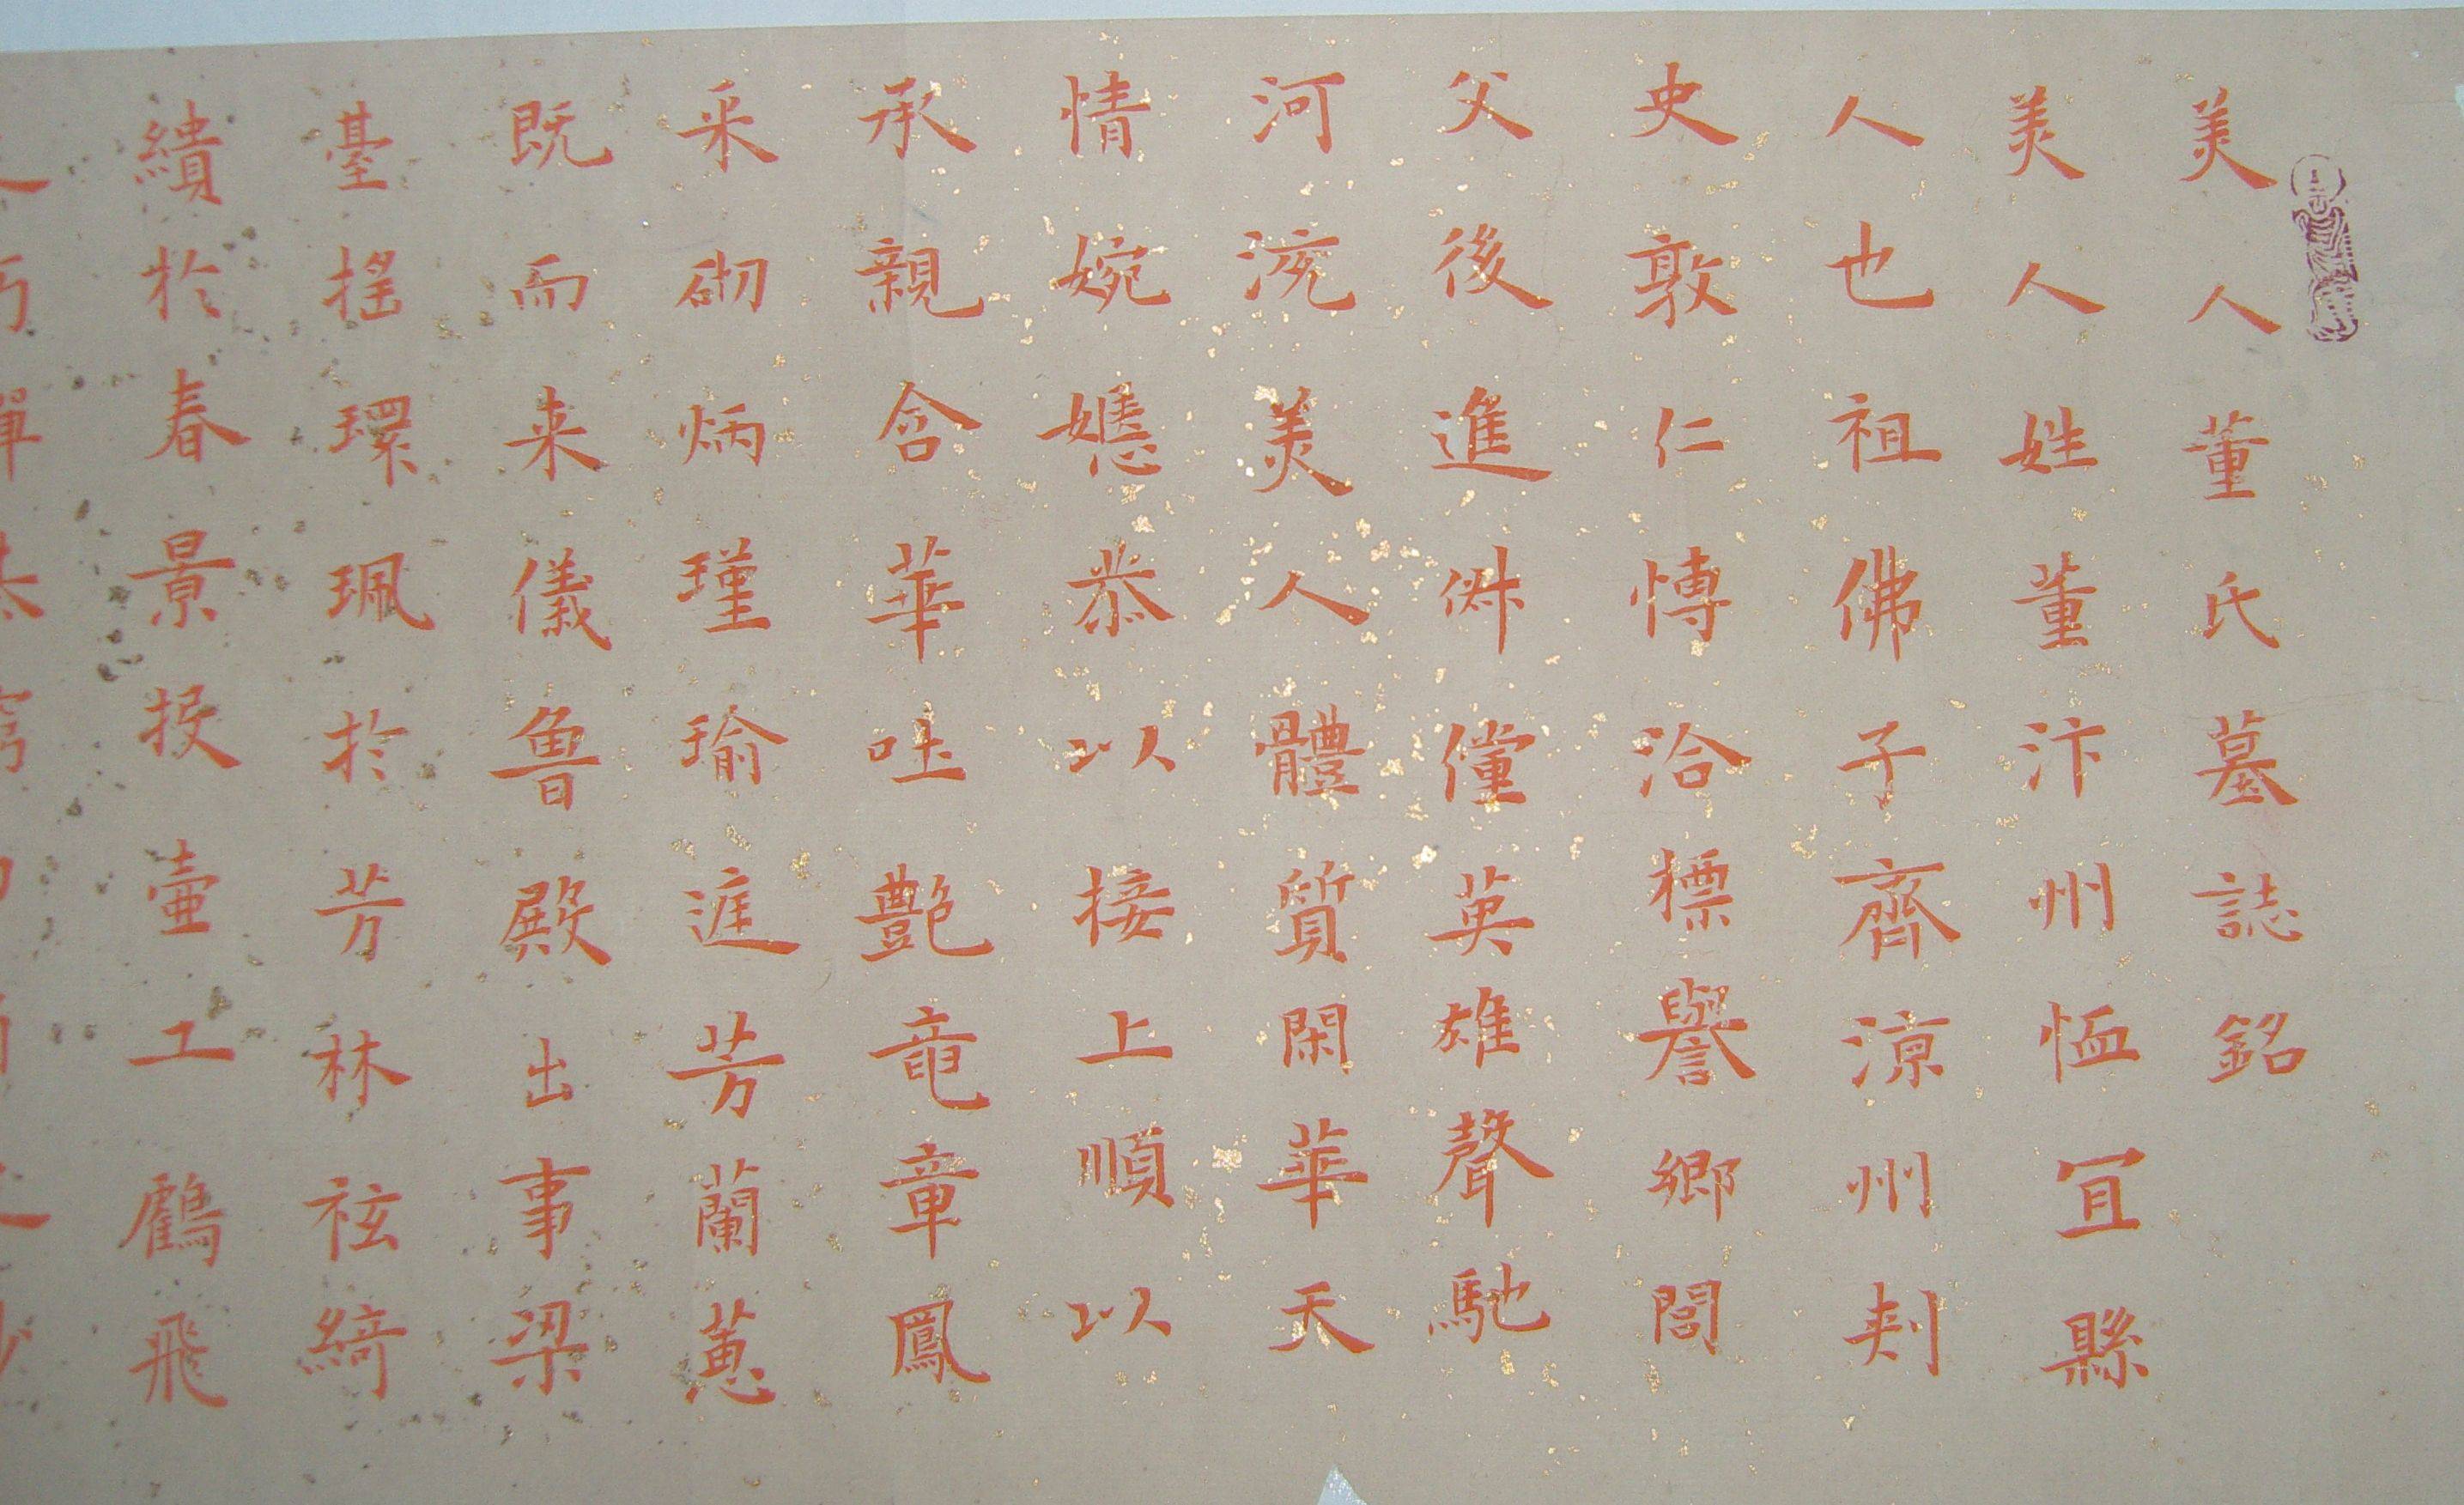 美人董氏墓誌銘
美人姓董汴州恤冝縣
人也祖佛子齊涼州刾
史敦仁愽洽摽譽鄉閭
父後進俶儻英雄聲馳
河浣美人體質閑華天
情婉嬺恭以接上順以
承親含華吐艷竜章鳳
采砌炳瑾瑜遳芳蘭蕙
既而来儀魯殿出事梁
臺搖環珮於芳林袨綺
繢於春景投壷工鶴飛